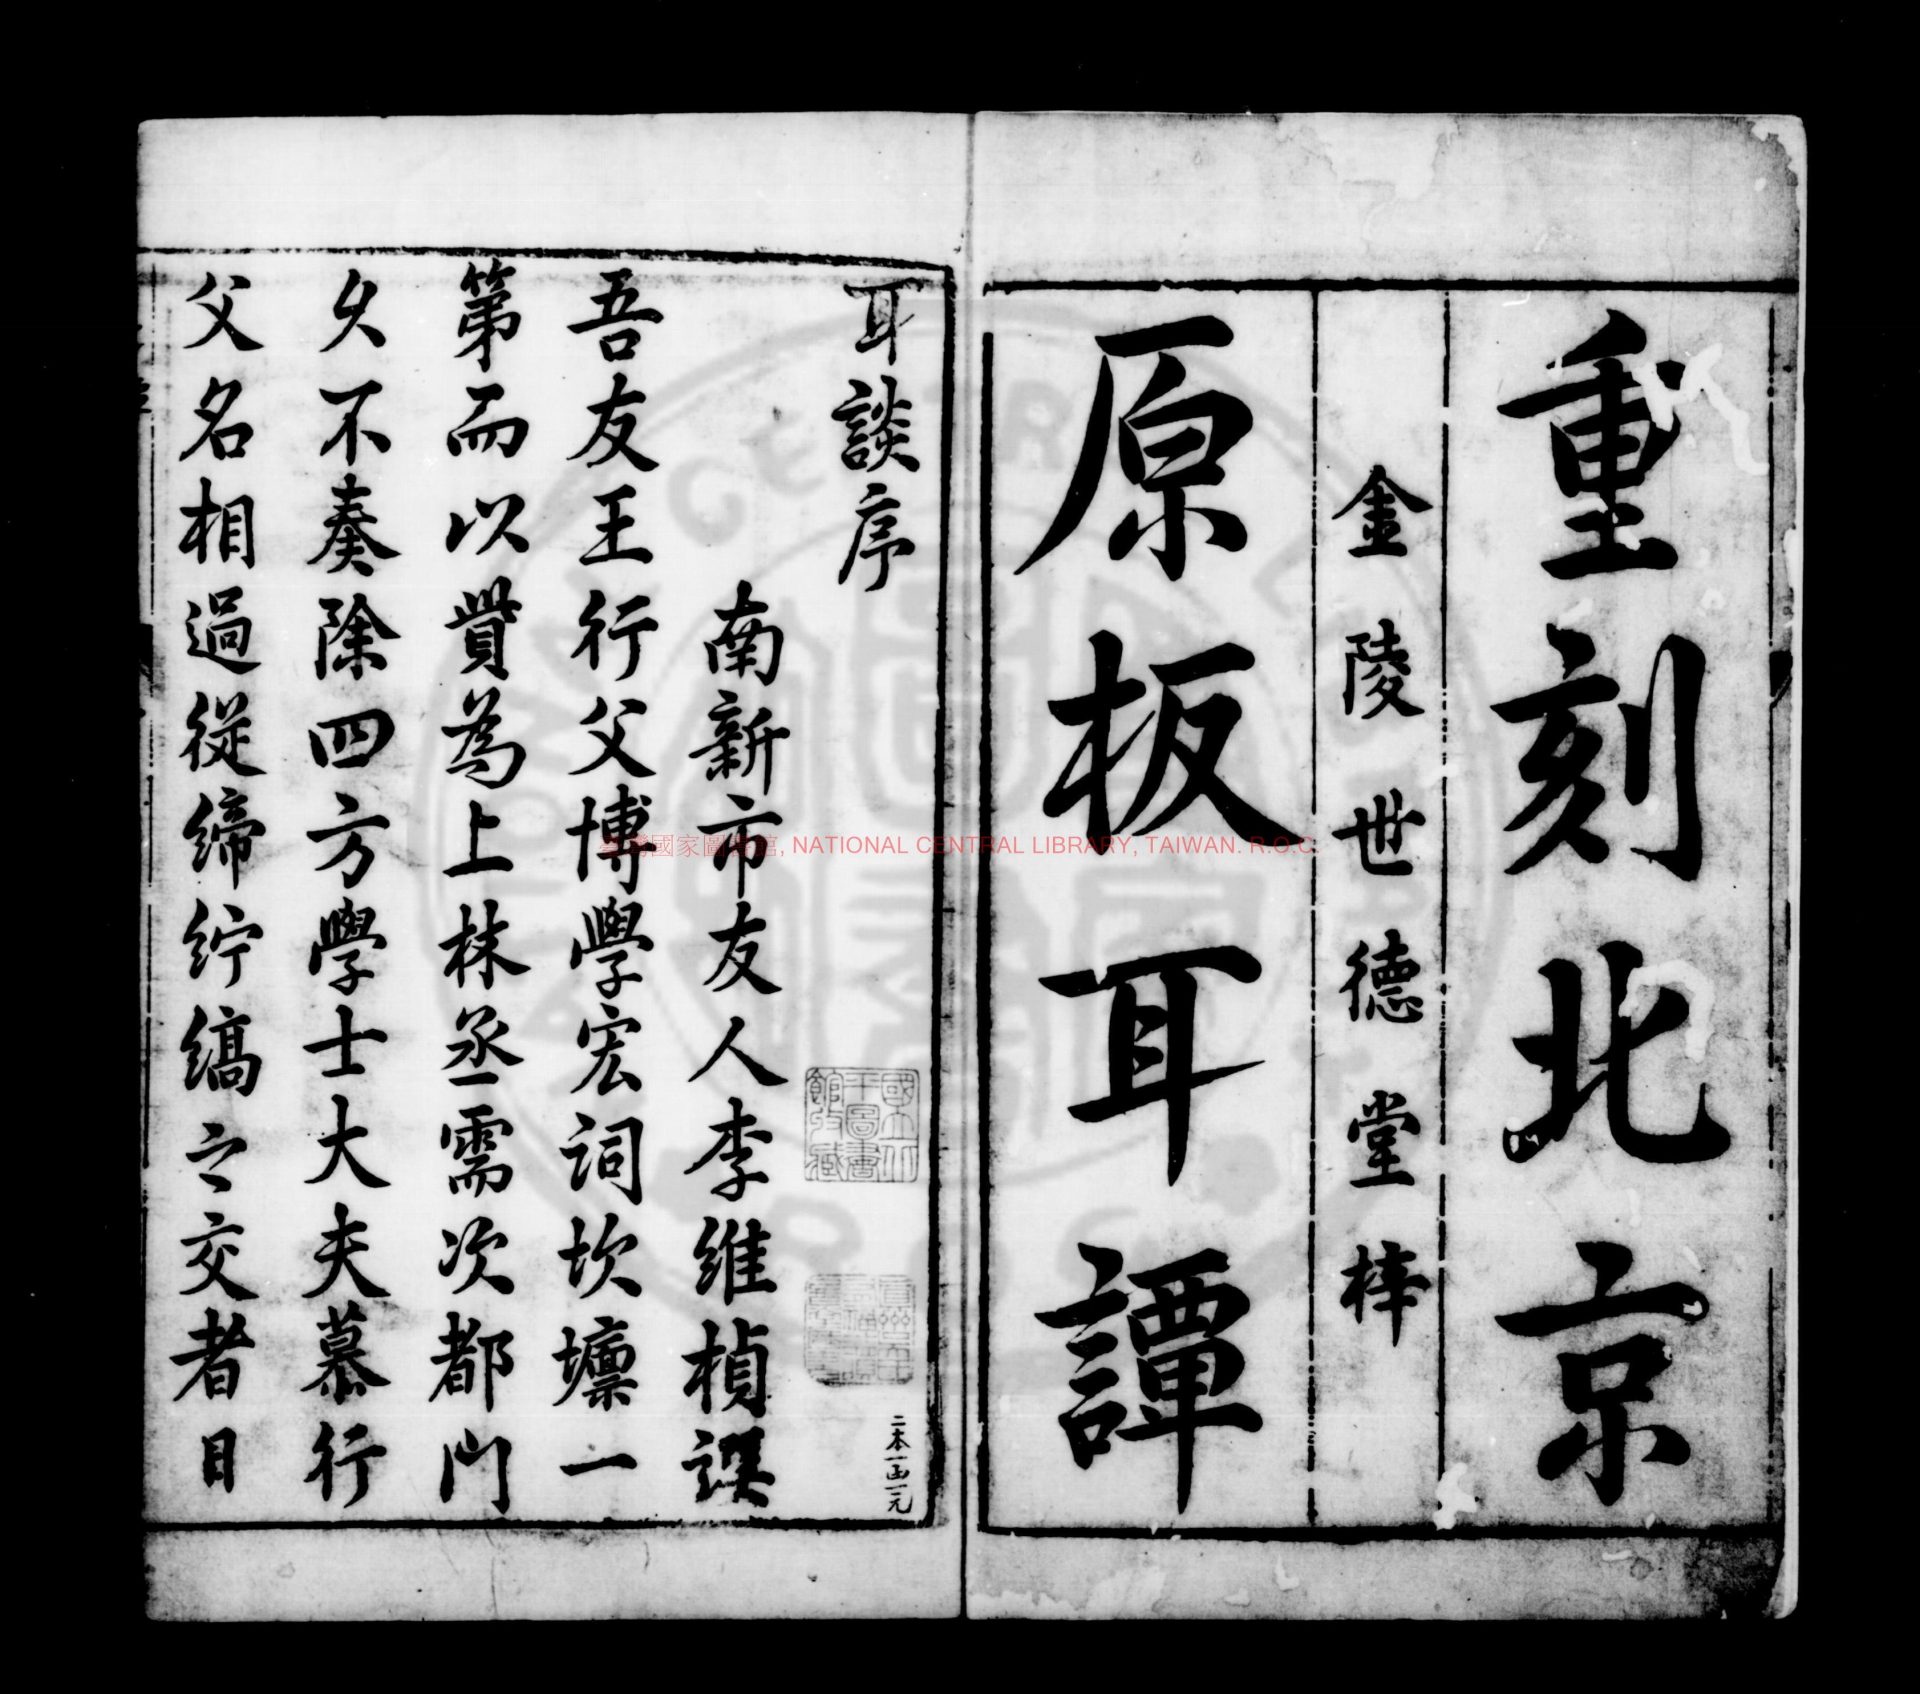 重刻北京
金陵世德堂梓
原板耳譚
耳談序
南新市友人李維楨譔
吾友王行父博學宏詞坎壈一
第而以貲為上林丞需次都門
久不奏除四方學士大夫慕行
父名相過從締紵縞之交者目
二本一函一元
國立北平圖書館收藏
臺灣國家圖書館, NATIONAL CENTRAL LIBRARY, TAIWAN. R.O.C.